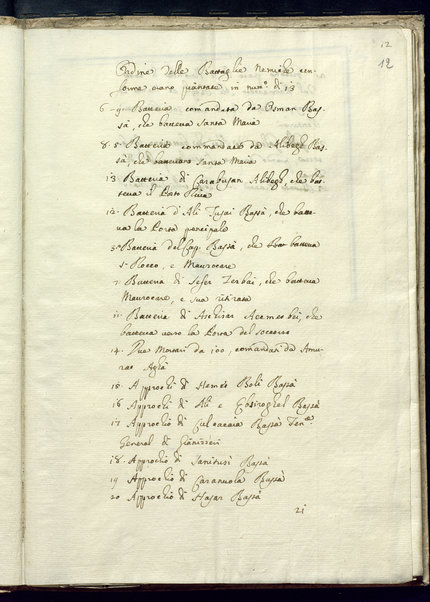 12
12
Ordine delle Battaglie nemiche con-
forme erano piantate in num.o di 13
6 - 9. Batteria comandata da Osman Bas-
sà, che batteva Santa Maria
8. 5. Batterie commandate da Alibegh Bas-
sà, che battevano Santa Maria
13. Batteria di Carabusan Alibegh, che bat-
teva il Porto
12. Batteria d'Ali Bassà, che batte-
va la Porta principale
3. Batteria del Cap. Bassà, che batteva
S. Rocco, e Maurocare
7. Batteria di Sefer Zerbai, che batteva
Maurocare, e sua ritirata
11. Batteria di Achisar Acemesbei, che
batteva verso la Porta del soccorso
14. Due Mortari da 100, comandati da Amu-
rac Agà
15. Approchi di Memes Boli Bassà
16 Approchi di Ali e Bassà
17. Approchio di Bassà Ten.e
General di Gianizeri
18. Approchio di Bassà
19 Approchio di Caramola Bassà
20 Approchio di Hasar Bassà
21